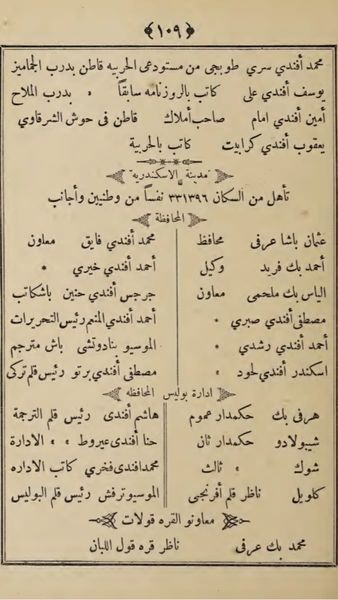 ﴿١٠٩﴾
محمد أفندي سري طوبجي من مستودعى الحربيه قاطن بدرب الجماميز
يوسف أفندي على كاتب بالروزنامه سابقا » بدرب الملاح
أمين أفندي امام صاحب أملاك قاطن فى حوش الشرقاوي
يعقوب أفندي كرابيت كاتب بالحربية
مدينة الاسكندرية
تأهل من السكان ٣٣١٣٩٦ نفساً من وطنيين وأجانب
المحافظة
عثمان باشا عرفى محافظ محمد أفندي فايق معاون
أحمد بك فريد وكيل أحمد أفندي خيري »
الياس بك ملحمى معاون جرجس أفندي حنين باشكاتب
مصطفى أفندي صبري » أحمد أفندي المنعم رئيس التحريرات
أحمد أفندي رشدي » الموسيو بنادوتشى باش مترجم
اسكندر أفندي لحود » مصطفى أفندي برتو رئيس قلم تركى
ادارة بوليس المحافظه
هرفى بك حكمدار عموم هاشم أفندي رئيس قلم الترجمة
شيبولادو حكمدار ثان حنا أفندي عيروط » » الادارة
شوك » ثالث محمد افندى فخري كاتب الاداره
كلويل ناظر قلم أفرنجى الموسيو ترفش رئيس قلم البوليس
معاونو القره قولات
محمد بك عرفى ناظر قره قول اللبان